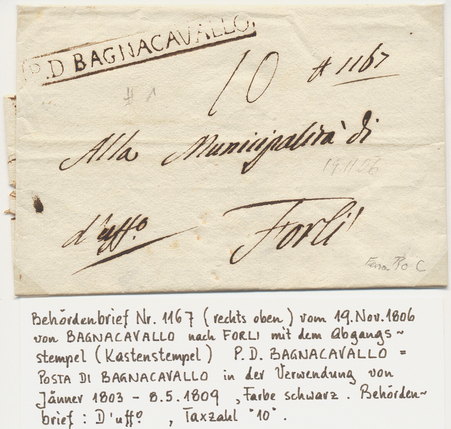 P.D BAGNACAVALLO
10 # 1167
# 1
Alla Municipalità di
19.11.06
d'uffo Forlì
Behördenbrief Nr. 1167 (rechts oben) vom 19.Nov.1806
von BAGNACAVALLO nach FORLI mit dem Abgangs~
stempel (Kastenstempel) P.D. BAGNACAVALLO =
POSTA DI BAGNACAVALLO in der Verwendung von
Jänner 1803 - 8.5.1809, Farbe schwarz. Behörden~
brief: D'uffo, Taxzahl "10".